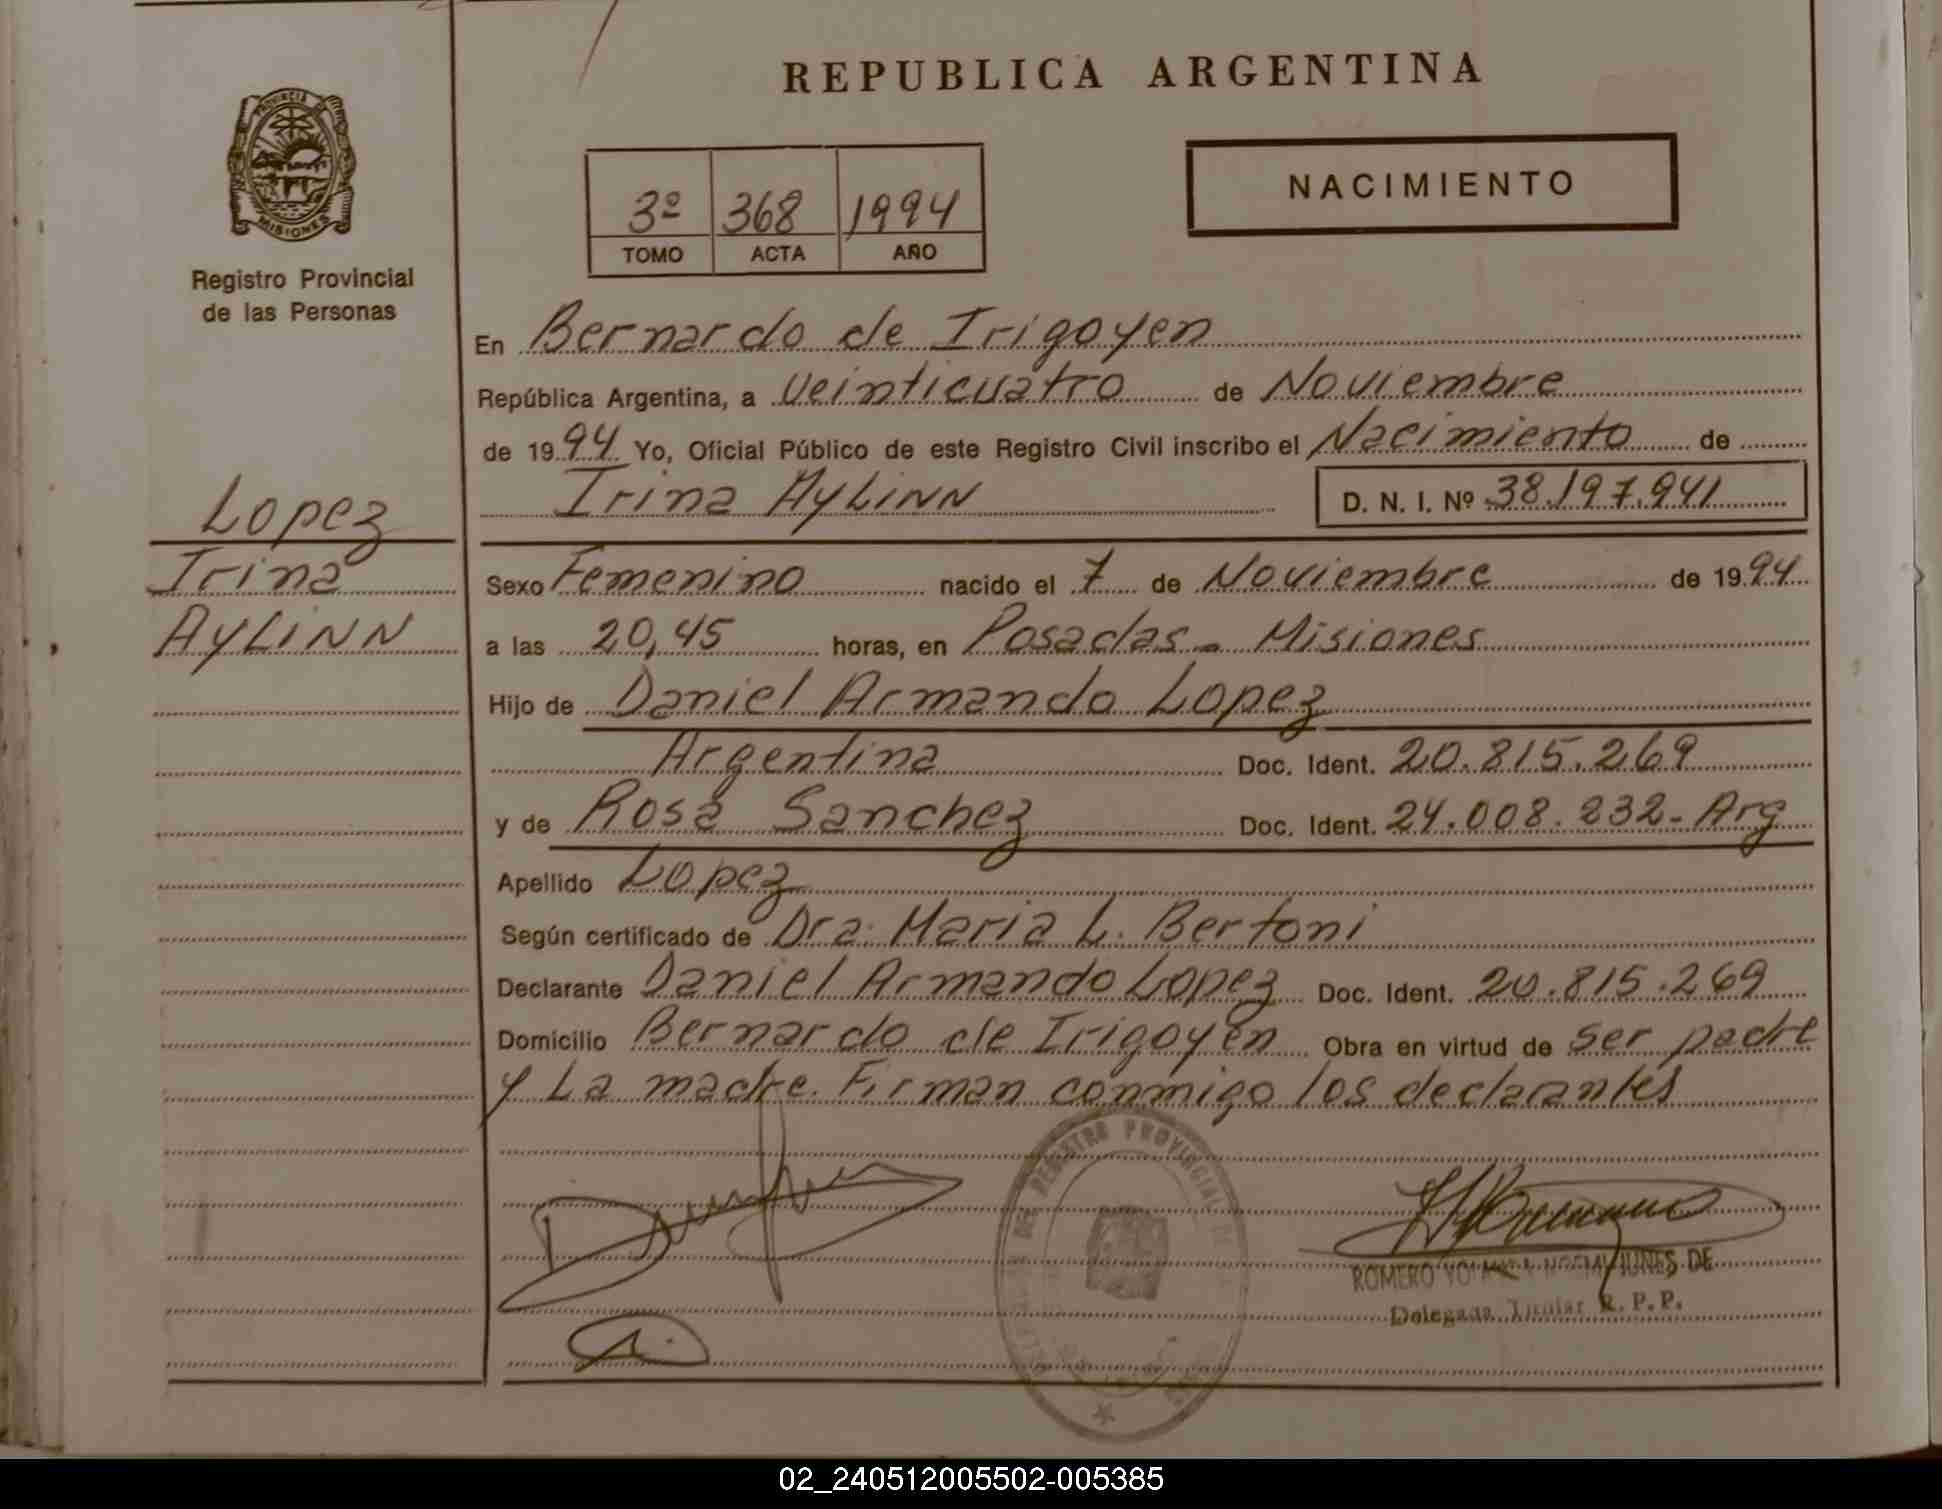 REPUBLICA ARGENTINA
PROVINCIA
MISIONES
Registro Provincial
de las Personas
3º 368 1994
TOMO ACTA AÑO
NACIMIENTO
En Bernardo de Irigoyen
República Argentina, a Veinticuatro de Noviembre
de 1994 Yo, Oficial Público de este Registro Civil inscribo el Nacimiento de
Irina Aylinn D. N. I. Nº 38.197.941
Lopez
Irina
Aylinn
Sexo Femenino nacido el 7 de Noviembre de 1994
a las 20,45 horas, en Posadas - Misiones
Hijo de Daniel Armando Lopez
Argentina Doc. Ident. 20.815.269
y de Rosa Sanchez Doc. Ident. 24.008.232- Arg
Apellido Lopez
Según certificado de Dra. Maria L. Bertoni
Declarante Daniel Armando Lopez Doc. Ident. 20.815.269
Domicilio Bernardo de Irigoyen Obra en virtud de ser padre
y La madre. Firman conmigo los declarantes
DEL REGISTRO PROVINCIAL DE
ROMERO DE
Delegada Titular R. P. P.
02_240512005502-005385